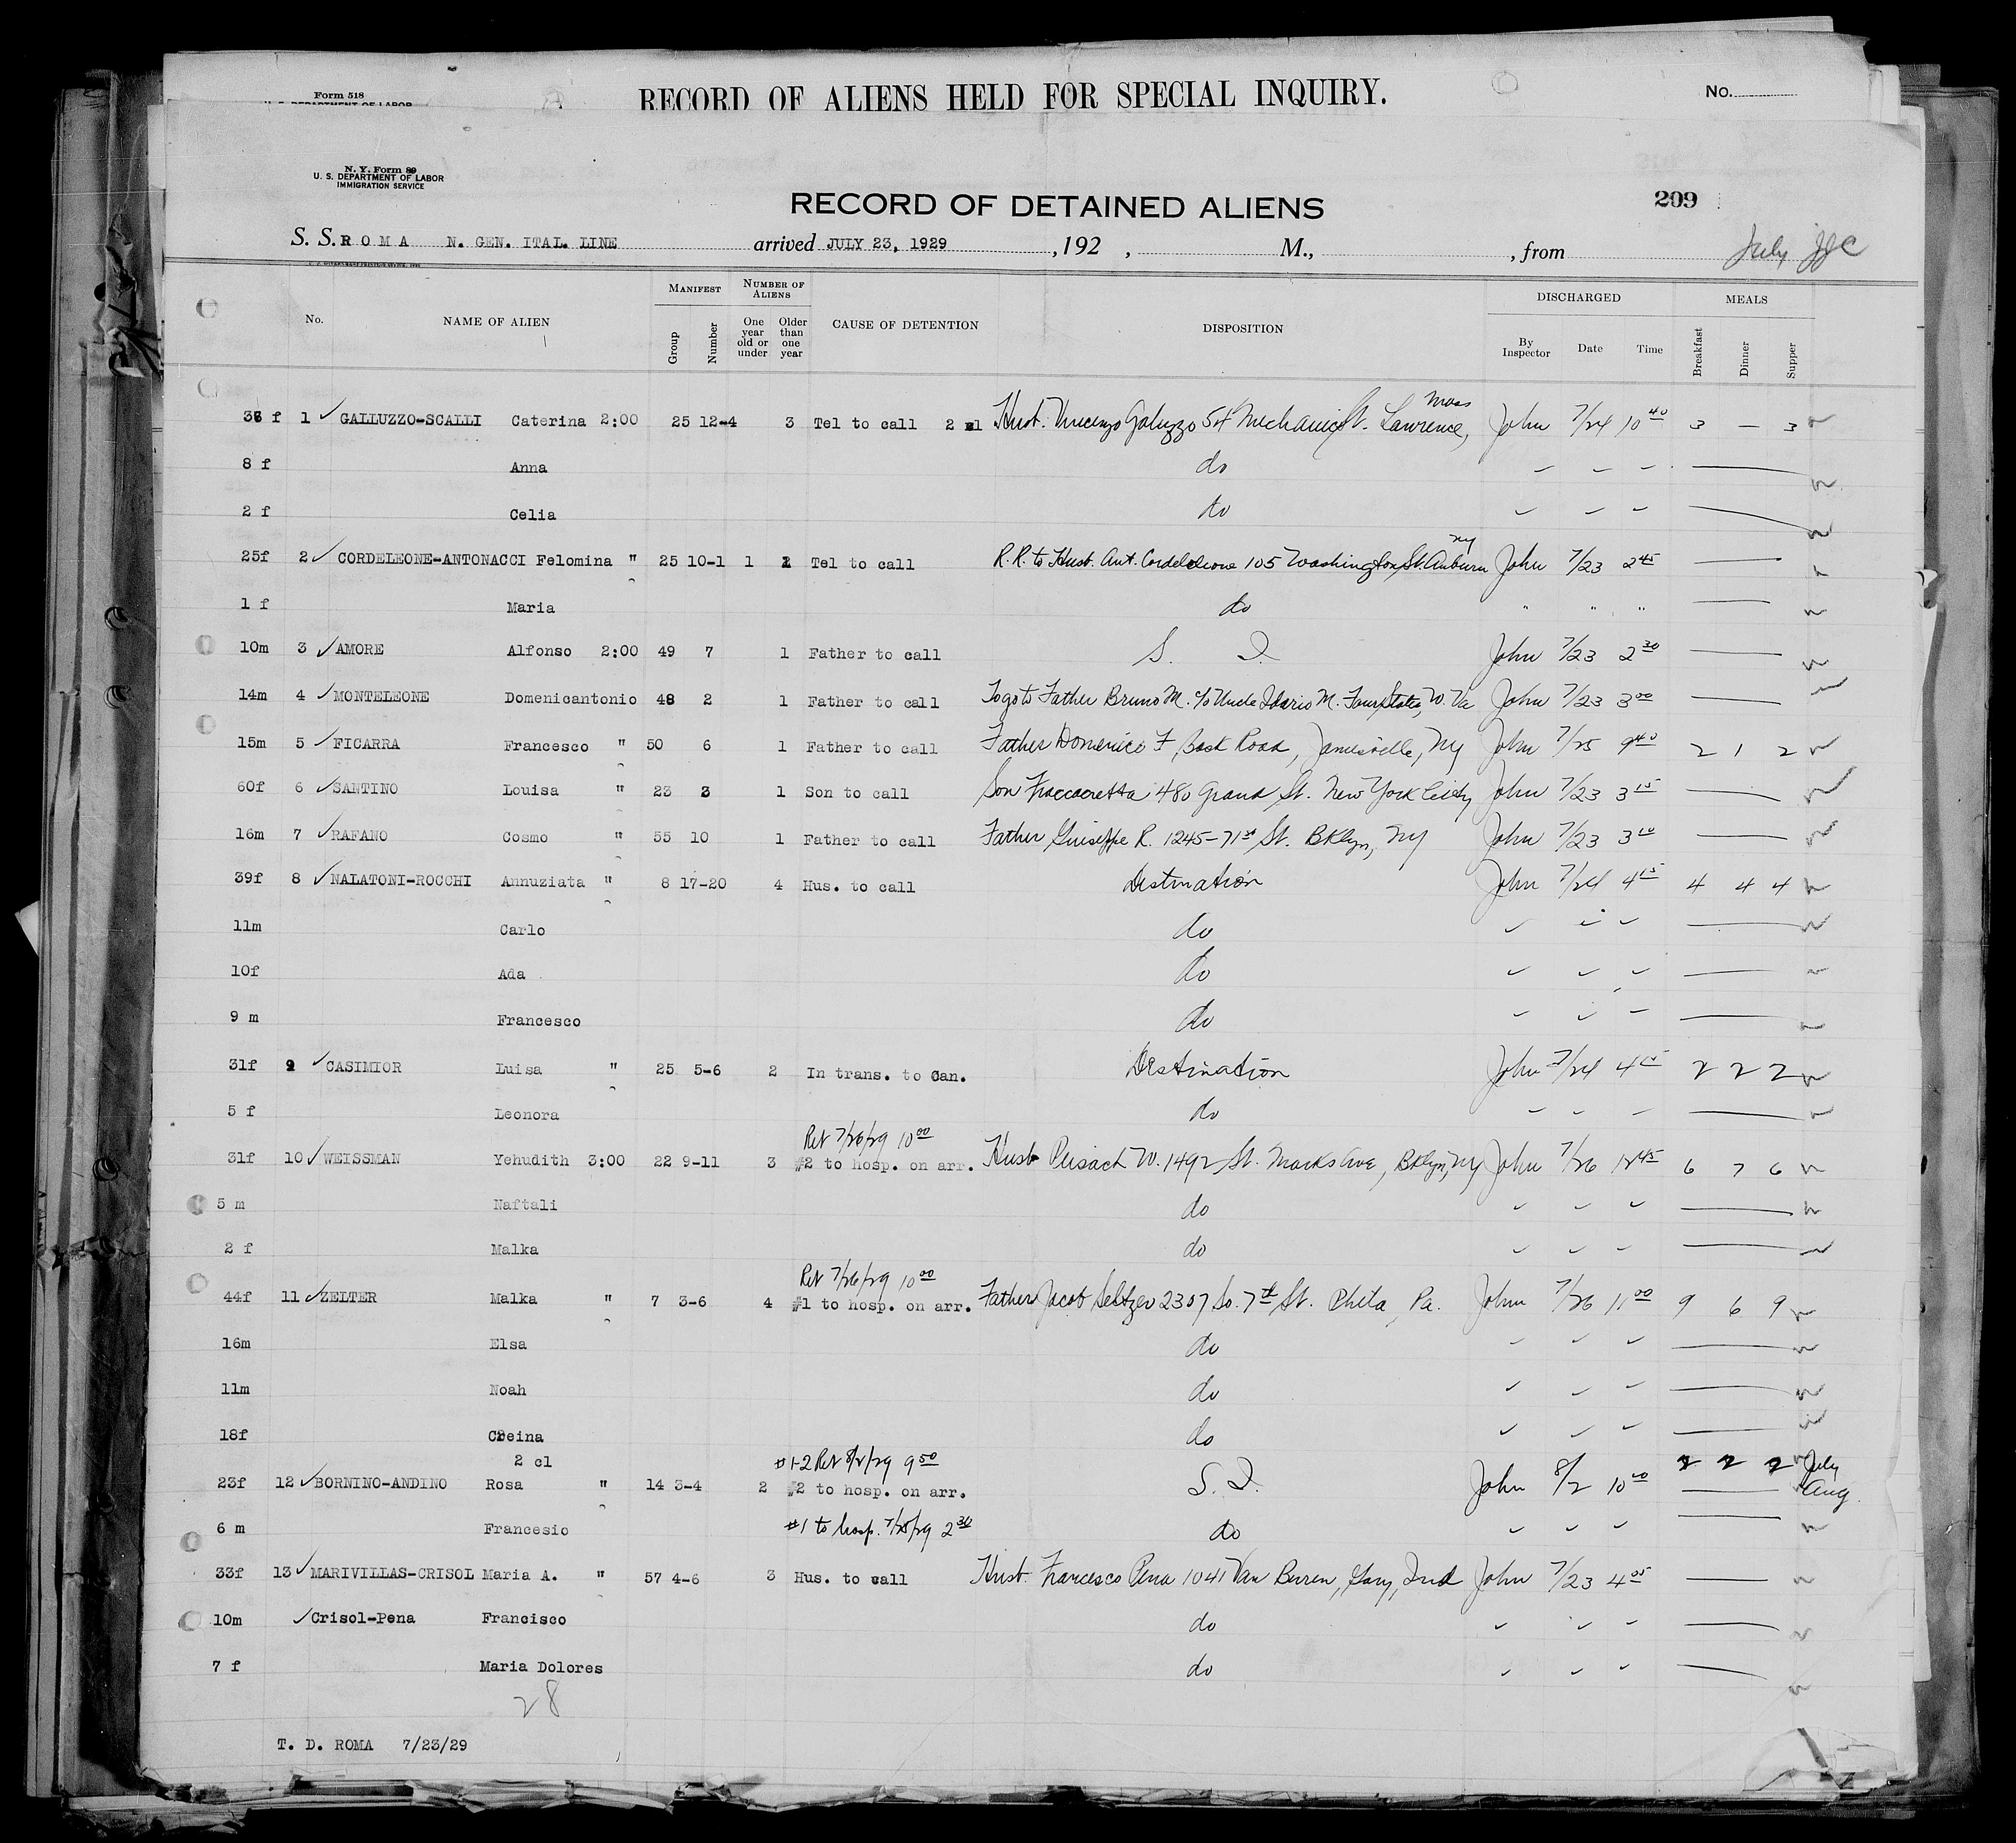 Form 518
U. S. DEPARTMENT OF LABOR
RECORD OF ALIENS HELD FOR SPECIAL INQUIRY.
No.
N. Y. Form 89
U. S. DEPARTMENT OF LABOR
IMMIGRATION SERVICE
RECORD OF DETAINED ALIENS
209
S. S. ROMA N. GEN. ITAL. LINE arrived JULY 23, 1929 , 192 , M., , from July
No. NAME OF ALIEN MANIFEST Group Number NUMBER OF ALIENS One year old or under Older than one year CAUSE OF DETENTION DISPOSITION DISCHARGED By Inspector Date Time MEALS Breakfast Dinner Supper
36 f 1 ✓ GALLUZZO-SCALLI Caterina 2:00 25 12-4 3 Tel to call 2 cl Husb. Vincenzo Galuzzo 54 Mechanic St. Lawrence, Mass John 7/24 10 40 3 — 3
8 f Anna do
2 f Celia do
25f 2 ✓ CORDELEONE-ANTONACCI Felomina " 25 10-1 1 1 Tel to call R.R. to Husb. Ant. Cordeleone 105 Washington St. Auburn NY John 7/23 2 45
1 f Maria do " " "
10m 3 ✓ AMORE Alfonso 2:00 49 7 1 Father to call S. I. John 7/23 2 30
14m 4 ✓ MONTELEONE Domenicantonio 48 2 1 Father to call To go to Father Bruno M. c/o Uncle Ilario M. Four States, W. Va John 7/23 3 00
15m 5 ✓ FICARRA Francesco " 50 6 1 Father to call Father Domenico F, Back Road, Jamesville, NY John 7/25 9 40 2 1 2
60f 6 ✓ SANTINO Louisa " 23 3 1 Son to call Son Fraccaretta 480 Grand St. New York City John 7/23 3 15
16m 7 ✓ RAFANO Cosmo " 55 10 1 Father to call Father Giuseppe R. 1245-71st St. Bklyn, NY John 7/23 3 10
39f 8 ✓ NALATONI-ROCCHI Annuziata " 8 17-20 4 Hus. to call Destination John 7/24 4 15 4 4 4
11m Carlo do
10f Ada do
9 m Francesco do
31f 9 ✓ CASIMIOR Luisa " 25 5-6 2 In trans. to Can. Destination John 7/24 4 15 2 2 2
5 f Leonora do
Ret 7/26/29 10 00
31f 10 ✓ WEISSMAN Yehudith 3:00 22 9-11 3 #2 to hosp. on arr. Husb Peisach W. 1492 St. Marks Ave, Bklyn, NY John 7/26 12 45 6 7 6
5 m Naftali do
2 f Malka do
Ret 7/26/29 10 00
44f 11 ✓ ZELTER Malka " 7 3-6 4 #1 to hosp. on arr. Father Jacob Seltzer 2307 So. 7th St. Phila, Pa. John 7/26 11 00 9 6 9
16m Elsa do
11m Noah do
18f Creina do
2 cl #1-2 Ret 8/2/29 9 50 2 2 2 July
23f 12 ✓ BORNINO-ANDINO Rosa " 14 3-4 2 #2 to hosp. on arr. S. I. John 8/2 10 00 Aug.
6 m Francesio #1 to hosp. 7/25/29 2 30 do
33f 13 ✓ MARIVILLAS-CRISOL Maria A. " 57 4-6 3 Hus. to call Husb. Francesco Pena 1041 Van Buren, Gary, Ind John 7/23 4 05
10m ✓ Crisol-Pena Francisco do
7 f Maria Dolores do
28
T. D. ROMA 7/23/29